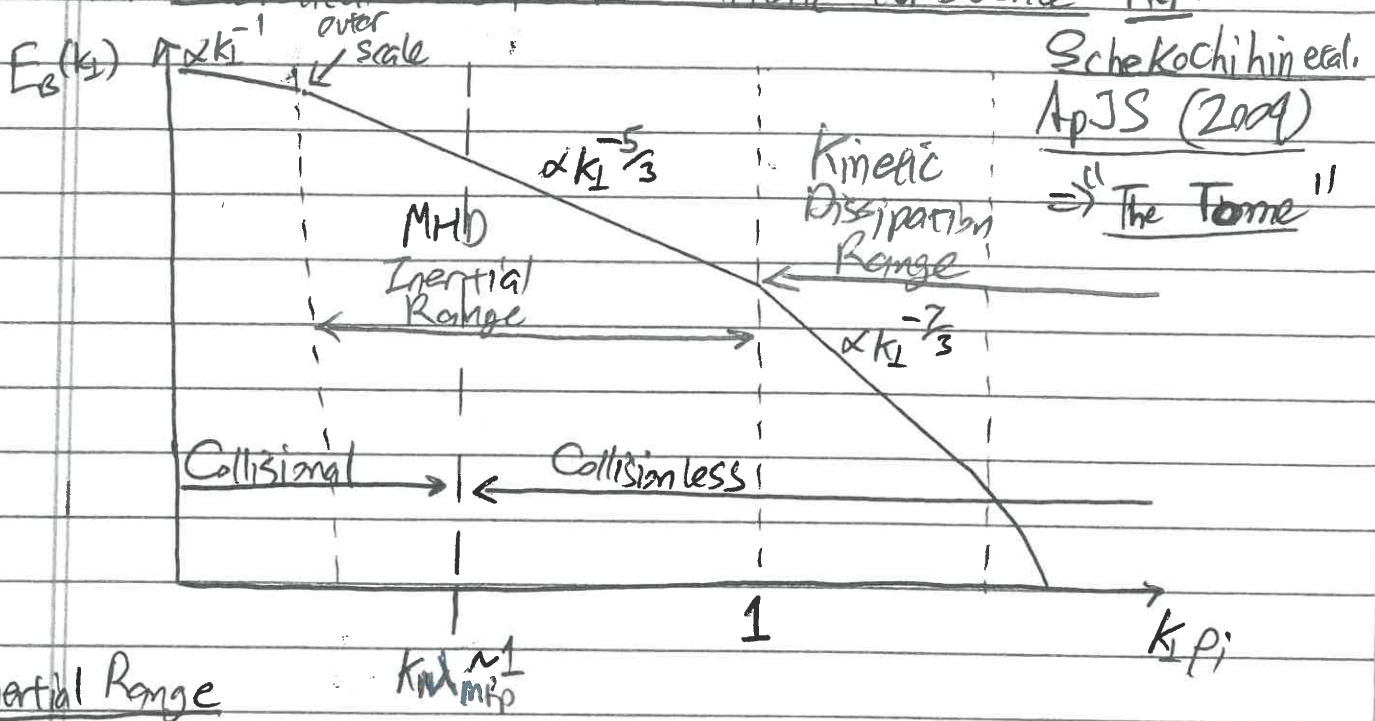 E_B(k_⊥)
∝k_⊥^-1
outer
scale
Schekochihin et al.
ApJS (2009)
⇒ "The Tome"
∝k_⊥^-5/3
Kinetic
Dissipation
Range
MHD
Inertial
Range
∝k_⊥^-7/3
Collisional
Collisionless
1
k_⊥ρ_i
k_∥λ_mfp~1
ertial Range